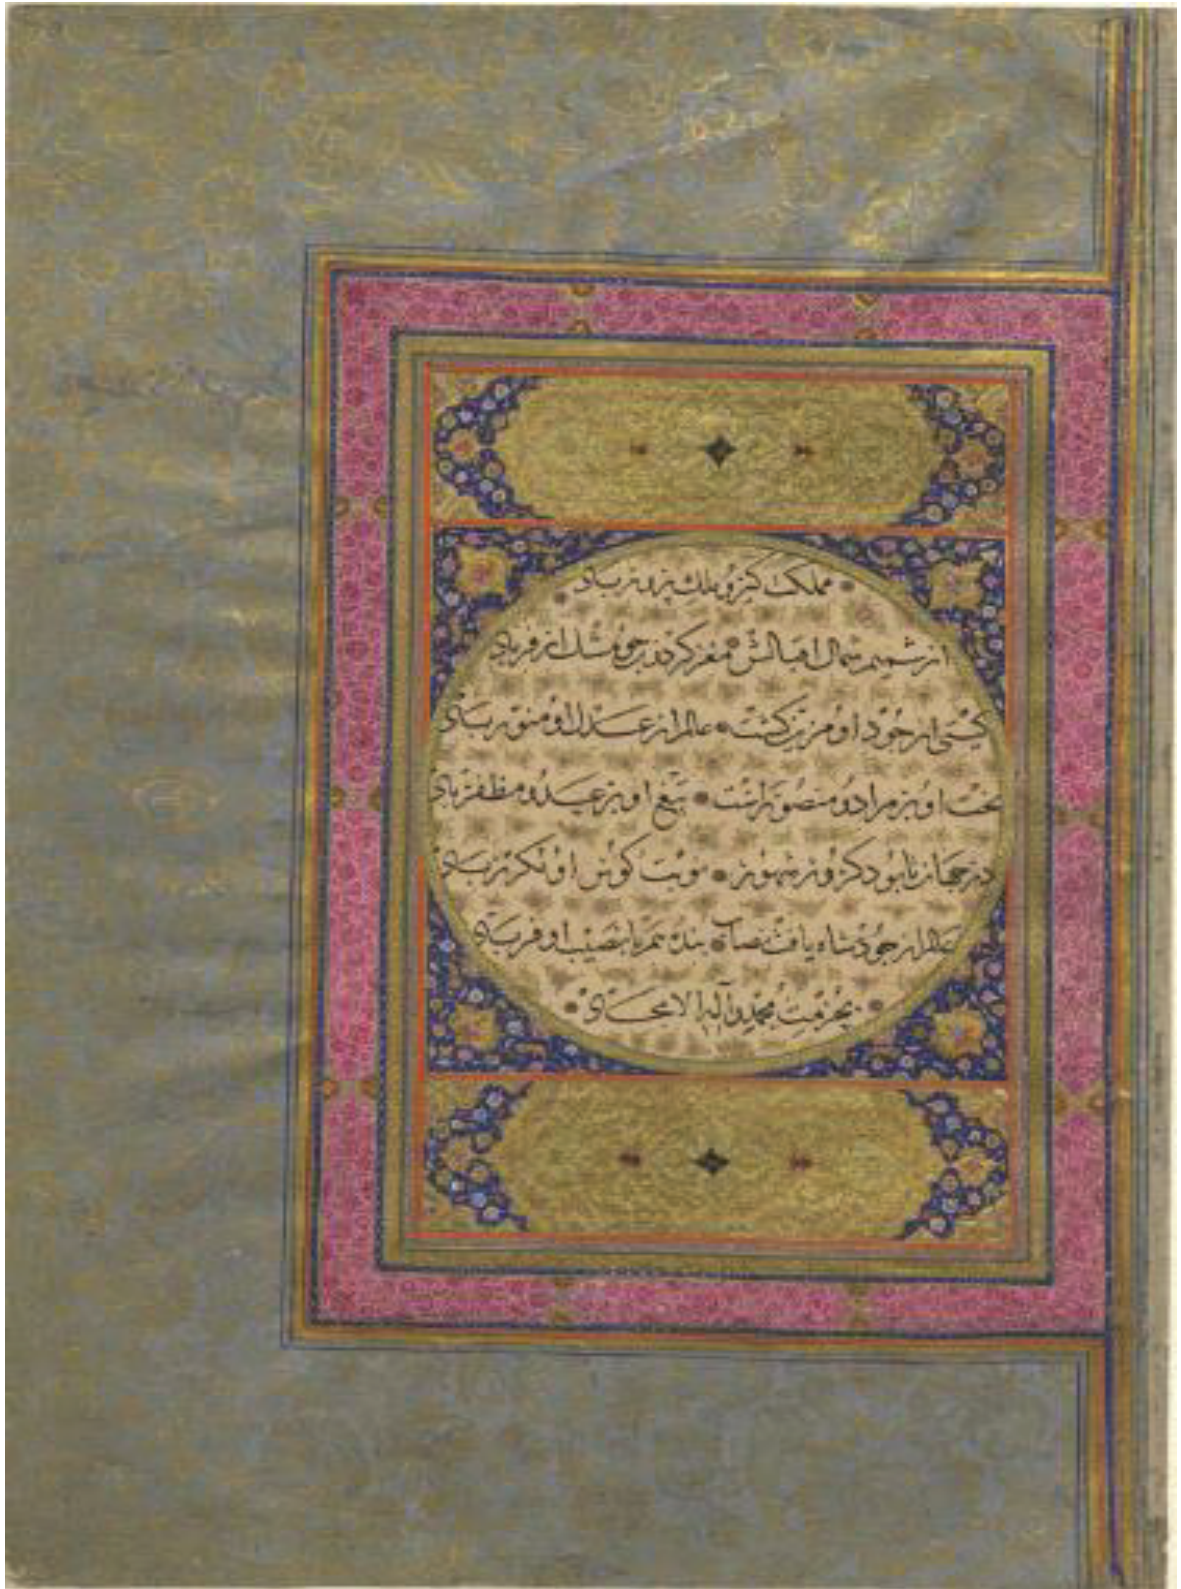 مملکت کیر و ملک پرور باد
از شمیم شمال اقبالش مغز کردون جو مشک ازفر باد
کیتی از جود او مزین کشت عالم از عدل او منور باد
بخت او بر مراد و منصورست تیغ او بر عدو مظفر باد
در جهان تا بود کرور شهور نوبت کوس او مکرر باد
عالم از جود شاه یافت نصاب بنده هم با نصیب او فر باد
بحرمت محمد و آله الامجاد